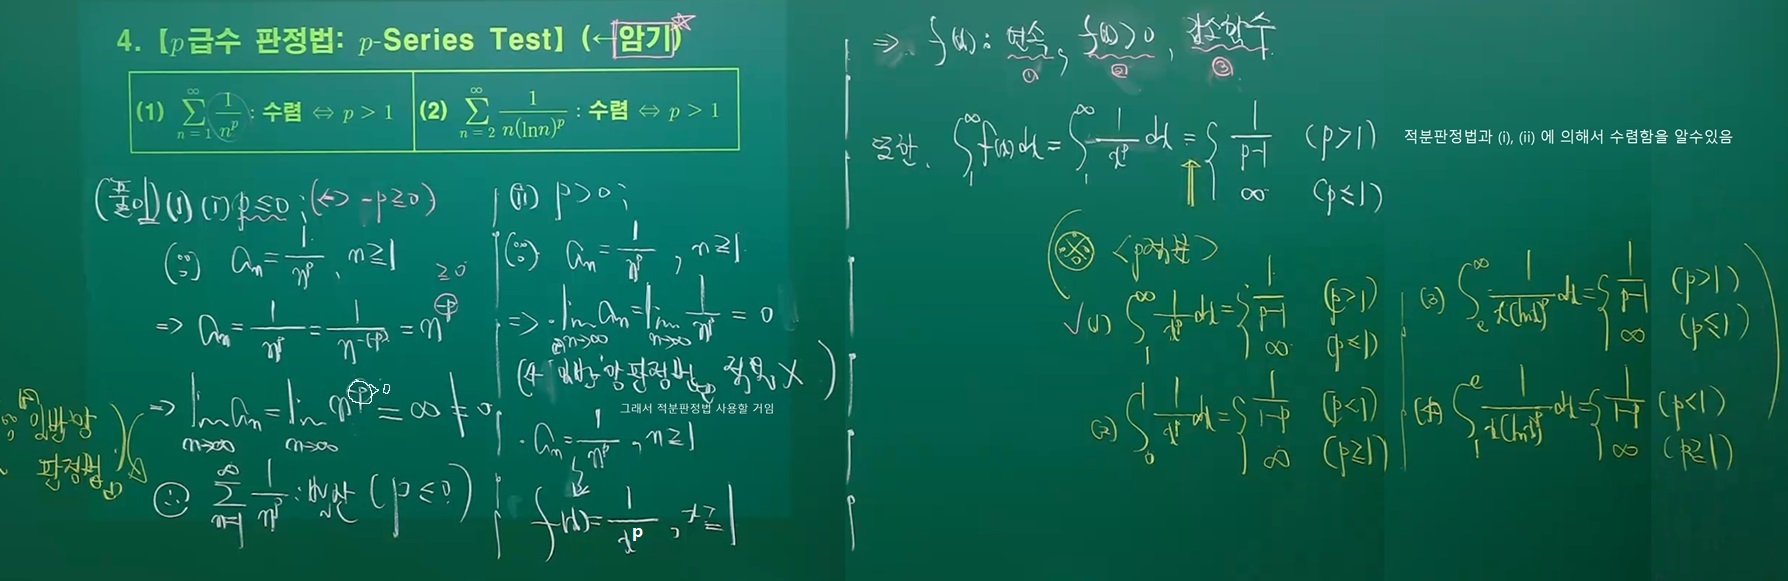 4. 【p급수 판정법: p-Series Test】 (←암기)
(1) ∑_{n=1}^{∞} 1/n^p : 수렴 ⇔ p > 1
(2) ∑_{n=2}^{∞} 1/(n(ln n)^p) : 수렴 ⇔ p > 1
(풀이) (1) (i) p≤0 ; (↔ -p≥0)
(∵) a_n = 1/n^p , n≥1
⇒ a_n = 1/n^p = 1/n^{-(-p)} = n^{-p} ≥0
⇒ lim_{n→∞} a_n = lim_{n→∞} n^{-p} = ∞ ≠ 0
일반항
판정법
∴ ∑_{n=1}^{∞} 1/n^p : 발산 (p≤0)
(ii) p>0 ;
(∵) a_n = 1/n^p , n≥1
⇒ · lim_{n→∞} a_n = lim_{n→∞} 1/n^p = 0
(← 일반항판정법 적용 X)
그래서 적분판정법 사용할 거임
· a_n = 1/n^p , n≥1
f(x) = 1/x^p , x≥1
⇒ f(x) : 연속, f(x)>0, 감소함수
① ② ③
또한, ∫_1^∞ f(x)dx = ∫_1^∞ 1/x^p dx = { 1/(p-1) (p>1)
∞ (p≤1)
적분판정법과 (i), (ii) 에 의해서 수렴함을 알수있음
※ <p적분>
√(1) ∫_1^∞ 1/x^p dx = { 1/(p-1) (p>1)
∞ (p≤1)
(2) ∫_0^1 1/x^p dx = { 1/(1-p) (p<1)
∞ (p≥1)
(3) ∫_e^∞ 1/(x(lnx)^p) dx = { 1/(p-1) (p>1)
∞ (p≤1)
(4) ∫_1^e 1/(x(lnx)^p) dx = { 1/(1-p) (p<1)
∞ (p≥1)